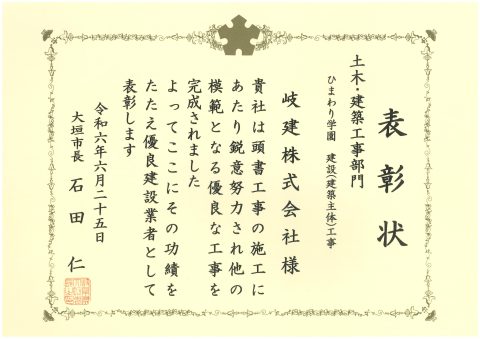 表彰状
土木・建築工事部門
ひまわり学園 建設(建築主体)工事
岐建株式会社様
貴社は頭書工事の施工に
あたり鋭意努力され他の
模範となる優良な工事を
完成されました
よってここにその功績を
たたえ優良建設業者として
表彰します
令和六年六月二十五日
大垣市長 石田仁